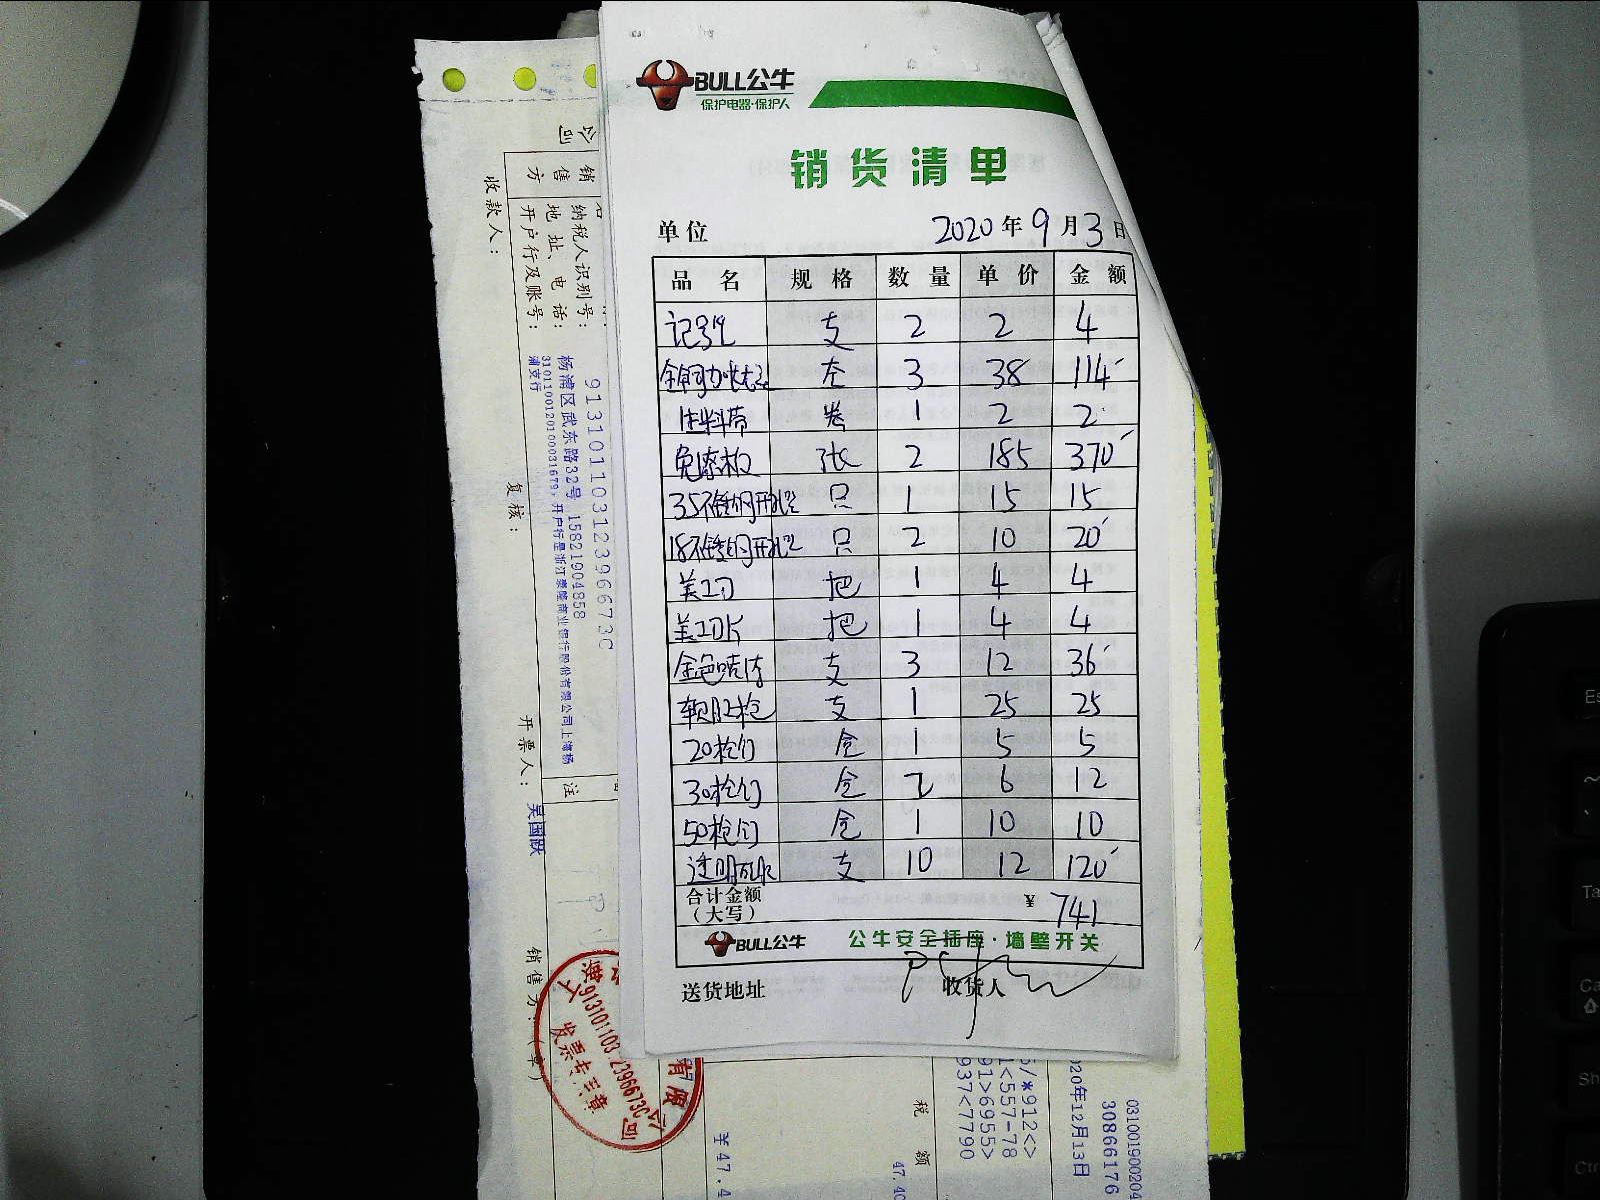 BULL公牛
保护电器·保护人
销货清单
单位 2020年9月3日
品名 规格 数量 单价 金额
记号笔 支 2 2 4
3 38 114
生料带 卷 1 2 2
免漆板 张 2 185 370
35不锈钢开孔器 只 1 15 15
18不锈钢开孔器 只 2 10 20
美工刀 把 1 4 4
美工刀片 把 1 4 4
金色喷漆 支 3 12 36
支 1 25 25
20枪钉 盒 1 5 5
30枪钉 盒 2 6 12
50枪钉 盒 1 10 10
透明 支 10 12 120
合计金额(大写) ¥ 741
BULL公牛 公牛安全插座·墙壁开关
送货地址 收货人
公司
销售方
纳税人识别号: 91310110312396673C
地址、电话: 杨浦区武东路32号 15821904858
开户行及账号: 31011001201000031679,开户行是浙江泰隆商业银行股份有限公司上海杨浦支行
收款人:
复核:
开票人: 吴国跃
注
销售方:(章)
913101103 2396673C
发票专用章
有限公司
5/*912<>
1<557-78
91>6955>
937<7790
税额
47.40
¥47.4
031001900204
30866176
020年12月13日